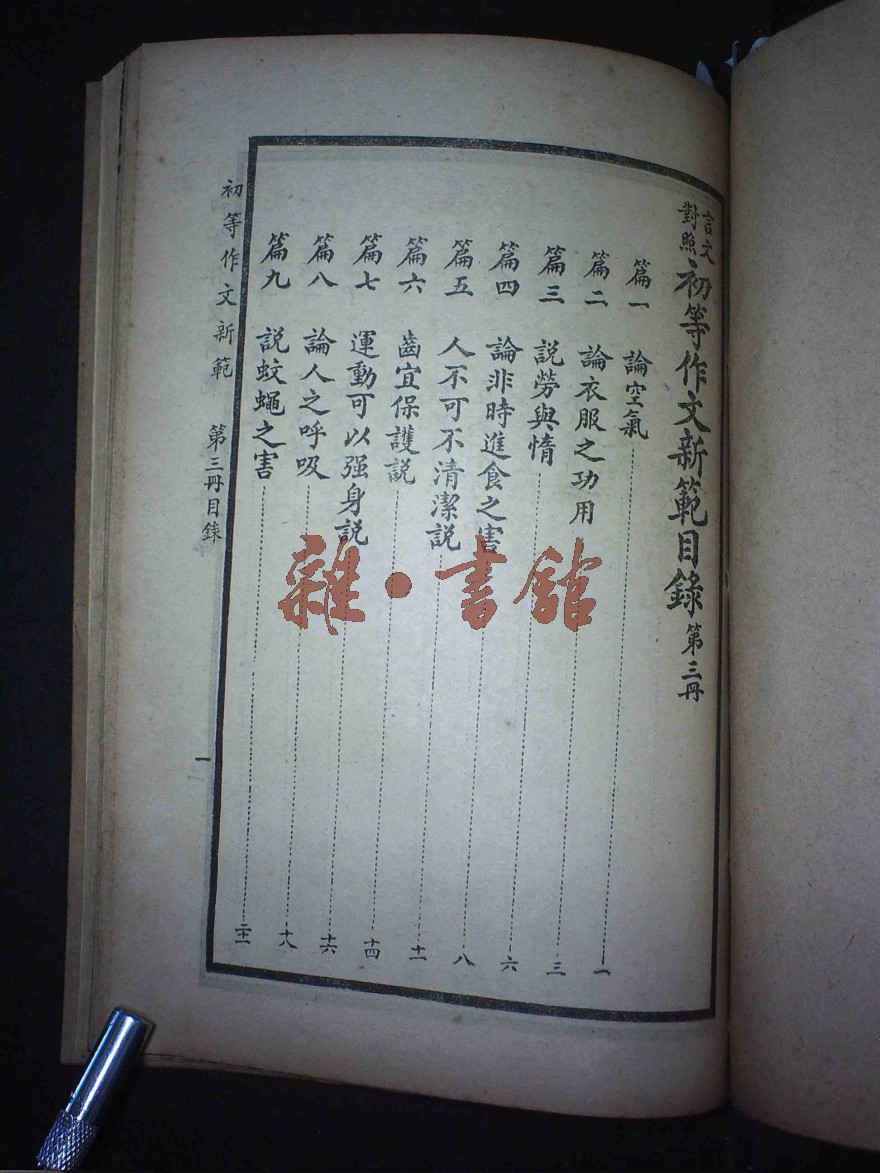 言文對照初等作文新範目錄 第三册
篇一 論空氣 一
篇二 論衣服之功用 三
篇三 説勞與惰 六
篇四 論非時進食之害 八
篇五 人不可不清潔説 十一
篇六 齒宜保護説 十四
篇七 運動可以强身説 十六
篇八 論人之呼吸 十八
篇九 説蚊蠅之害
初等作文新範 第三冊目錄 一
雜·書館